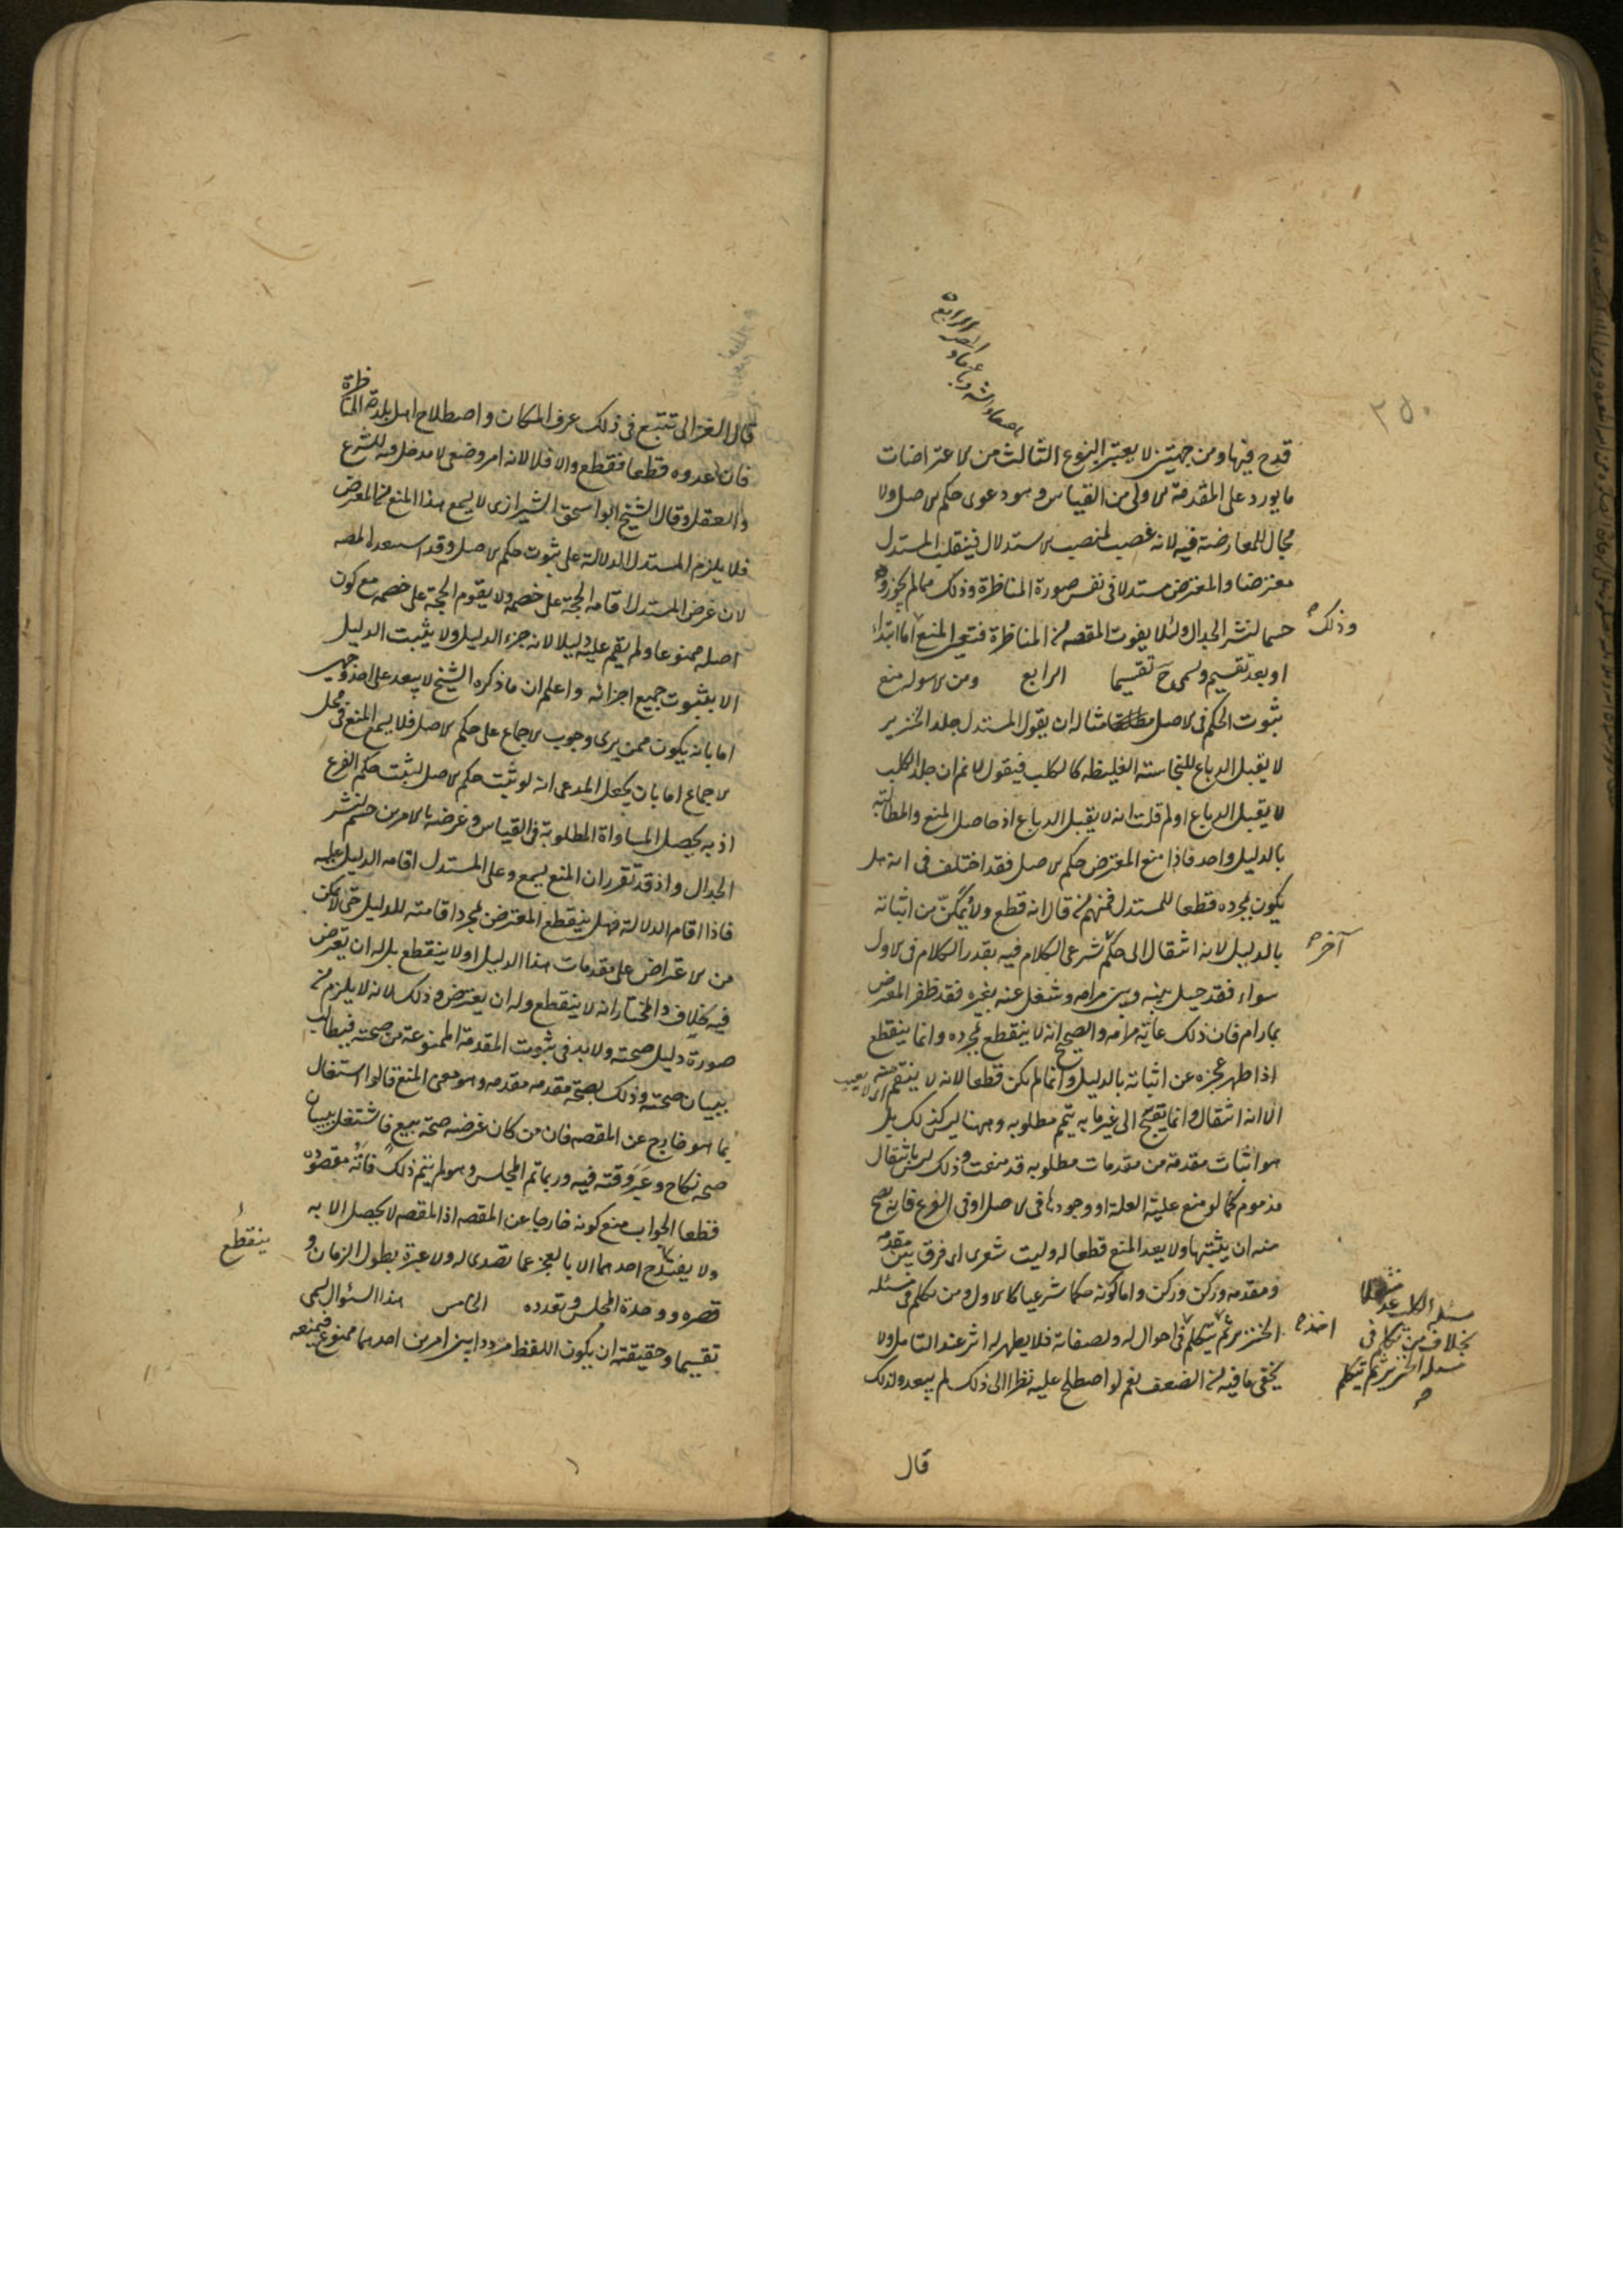 ٣٥٠
قدح فيها ومن جهتين لا يعتبر النوع الثالث من الاعتراضات
ما يورد على المقدمة الاولى من القياس وهو دعوى حكم الاصل ولا
مجال للمعارضة فيه لانه غصب لمنصب الاستدلال فينقلب المستدل
معترضا والمعترض مستدلا في نفس صورة المناظرة وذلك مما لم يجوزوه
وذلك
حسما لنشر الجدال ولئلا يفوت المقصد من المناظرة فتعين المنع اما ابتداء
او بعد تقسيم ويسمى ح تقسيما الرابع ومن الاسوله منع
ثبوت الحكم في الاصل مثاله ان يقول المستدل جلد الخنزير
لا يقبل الدباغ للنجاسة الغليظه كالكلب فيقول لا نم ان جلد الكلب
لا يقبل الدباغ او لم قلت انه لا يقبل الدباغ اذ حاصل المنع والمطالبة
بالدليل واحد فاذا منع المعترض حكم الاصل فقد اختلف في انه هل
يكون بمجرده قطعا للمستدل فمنهم من قال انه قطع ولا يمكن من اثباته
آخر
بالدليل لانه انتقال الى حكم شرعي الكلام فيه بقدر الكلام في الاول
سواء فقد حيل بينه وبين مرامه وشغل عنه بغيره فقد ظفر المعترض
بمارام فان ذلك غاية مرامه والصحيح انه لا ينقطع بمجرده وانما ينقطع
اذا ظهر عجزه عن اثباته بالدليل وانما لم يكن قطعا لانه لا ينتقم منه اى لا يعيب
الا انه انتقال وانما يقبح الى غير ما به يتم مطلوبه وههنا ليس كذلك بل
هو اثبات مقدمة من مقدمات مطلوبه قد منعت وذلك ليس بانتقال
مذموم كما لو منع علية العلة او وجودها في الاصل او في الفرع فانه يصح
منه ان يثبتها ولا يعد المنع قطعا له وليت شعرى اى فرق بين مقدمه
ومقدمه وركن وركن واما كونه حكما شرعيا كالاول ومن تكلم في مسئلة
اخذ
الخنزير ثم يتكلم في احواله وصفاته فلا يظهر له اثر عند التامل ولا
بخلاف من تكلم في
مسئله الخنزير ثم تكلم
يخفى ما فيه من الضعف نعم لو اصطلح عليه نظرا الى ذلك لم يبعد ولذلك
قال
قال الغزالى تتبع في ذلك عرف المكان واصطلاح اهل بلدة المناظرة
فان عدوه قطعا فقطع والا فلا لانه امر وضعي لا مدخل فيه للشرع
والعقل وقال الشيخ ابو اسحق الشيرازى لا يسمع هذا المنع من المعترض
فلا يلزم المستدل الدلالة على ثبوت حكم الاصل وقد استبعده المصه
لان غرض المستدل اقامة الحجة على خصمه ولا يقوم الحجة على خصمه مع كون
اصله ممنوعا ولم يقم عليه دليلا لانه جزء الدليل ولا يثبت الدليل
الا بثبوت جميع اجزائه واعلم ان ما ذكره الشيخ لا يبعد على احد وجهين
اما بانه يكون ممن يرى وجوب الاجماع على حكم الاصل فلا يسمع المنع في محل
الاجماع اما بان يجعل المدعى انه لو ثبت حكم الاصل لثبت حكم الفرع
اذ به يحصل المساواة المطلوبة في القياس وغرضه بالامرين حسم لنشر
الجدال واذ قد تقرر ان المنع يسمع وعلى المستدل اقامة الدليل عليه
فاذا اقام الدلالة فهل ينقطع المعترض لمجرد اقامته للدليل حتى لا يمكن
من الاعتراض على مقدمات هذا الدليل او لا ينقطع بل له ان يعترض
فيه خلاف والمختار انه لا ينقطع وله ان يعترض وذلك لانه لا يلزم من
صورة دليل صحته ولا بد في ثبوت المقدمة الممنوعة من صحته فيطالب
ببيان صحته وذلك بصحة مقدمه مقدمه وهو معنى المنع قالوا اشتغال
بما هو خارج عن المقصد فان من كان غرضه صحة بيع فاشتغل ببيان
صحة نكاح وغير وقته فيه وربما تم المجلس وهو لم يتم ذلك فاته مقصوده
قطعا الجواب منع كونه خارجا عن المقصد اذ المقصد لا يحصل الا به
ينقطع
ولا احدهما الا بالعجز عما تصدى له ولا عبرة بطول الزمان و
قصره ووحدة المجلس وتعدده الخامس هذا السئوال يسمى
تقسيما وحقيقته ان يكون اللفظ مترددا بين امرين احدهما ممنوع فيمنعه